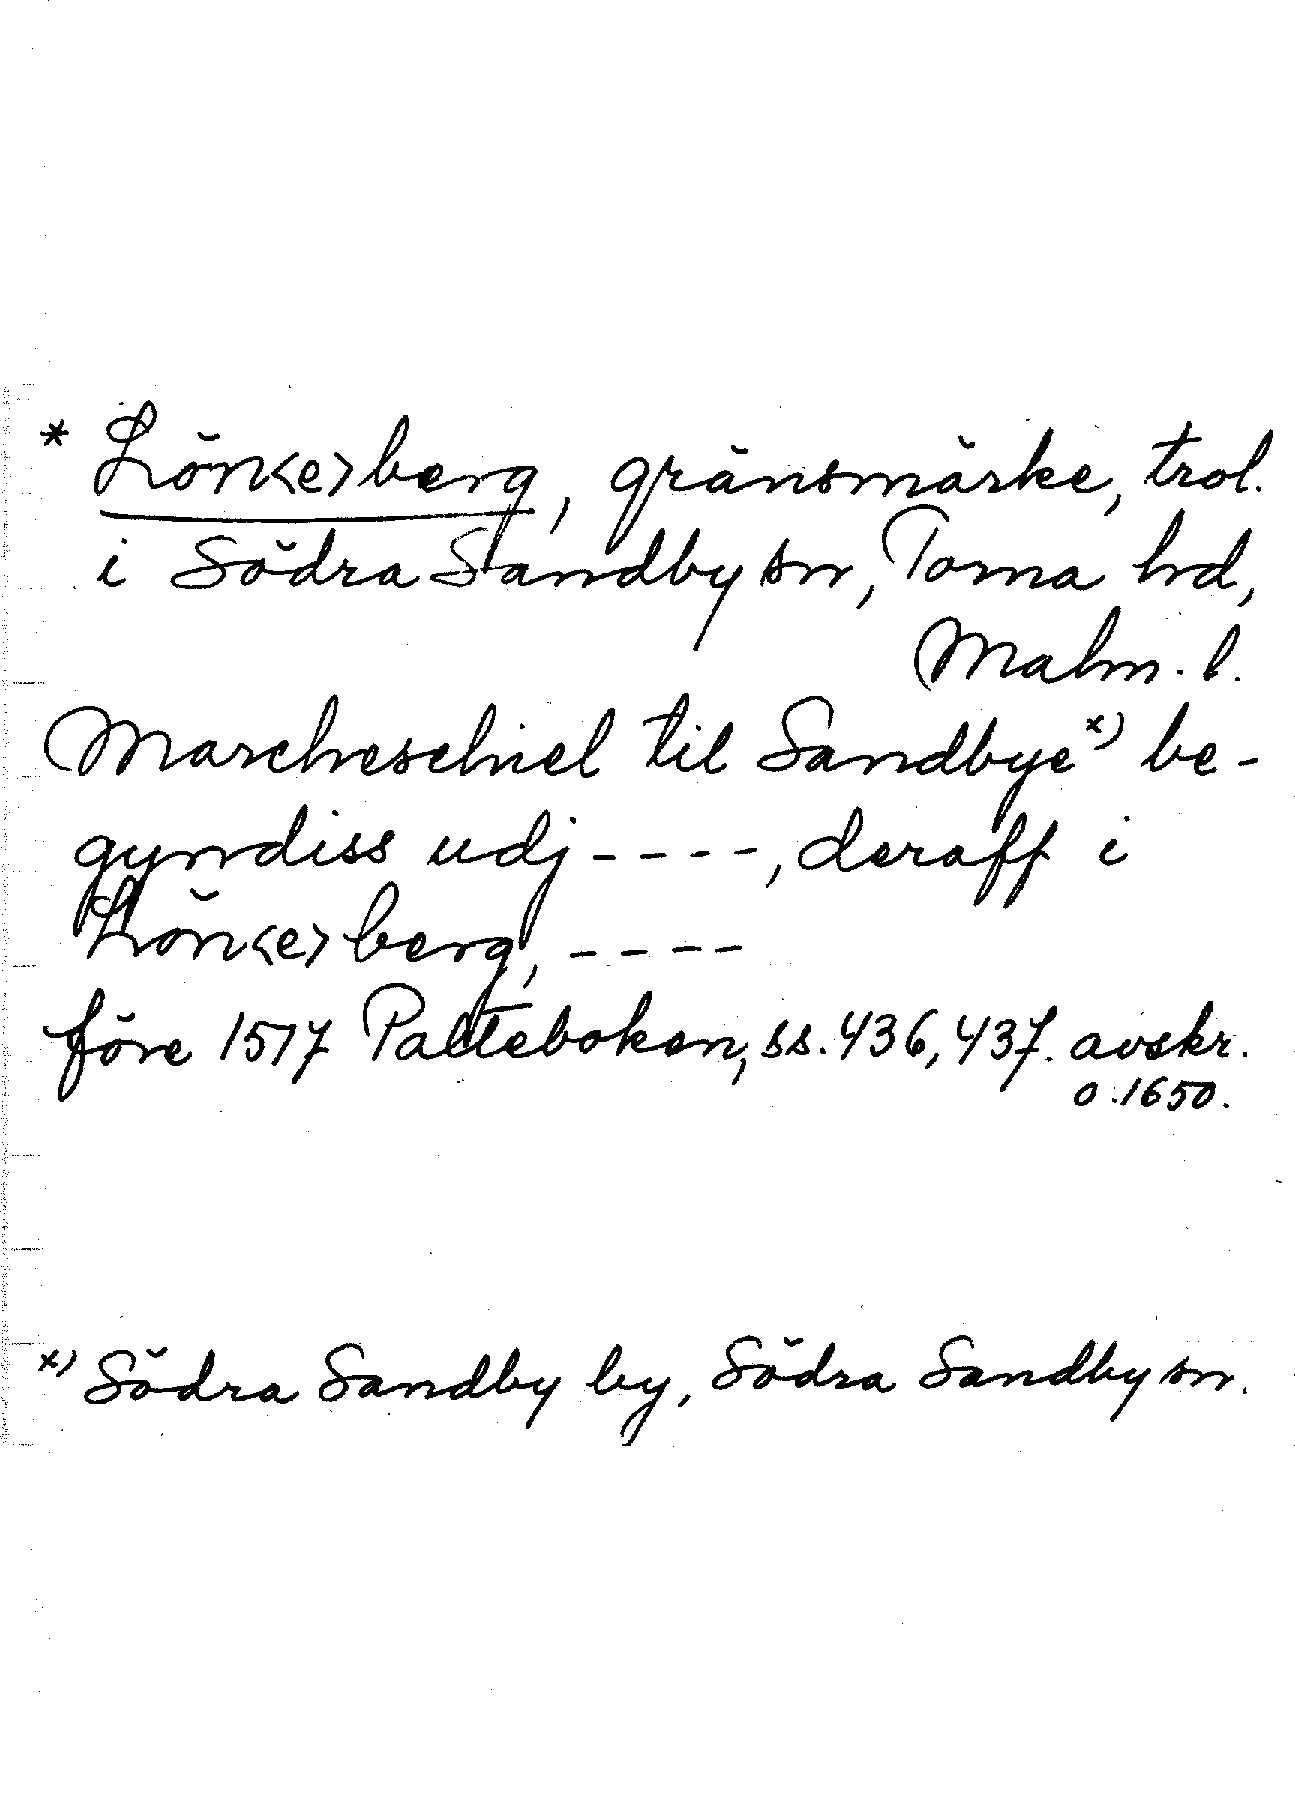 * Lön<e>berg, gränsmärke, trol.
i Södra Sandby sn, Torna hd,
Malm. l.
Marcheschiel til Sandbye x) be-
gyndiss udj ----, deraff i
Lön<e>berg, ----
före 1517 Palteboken, ss. 436, 437. avskr.
o. 1650.
x) Södra Sandby by, Södra Sandby sn.